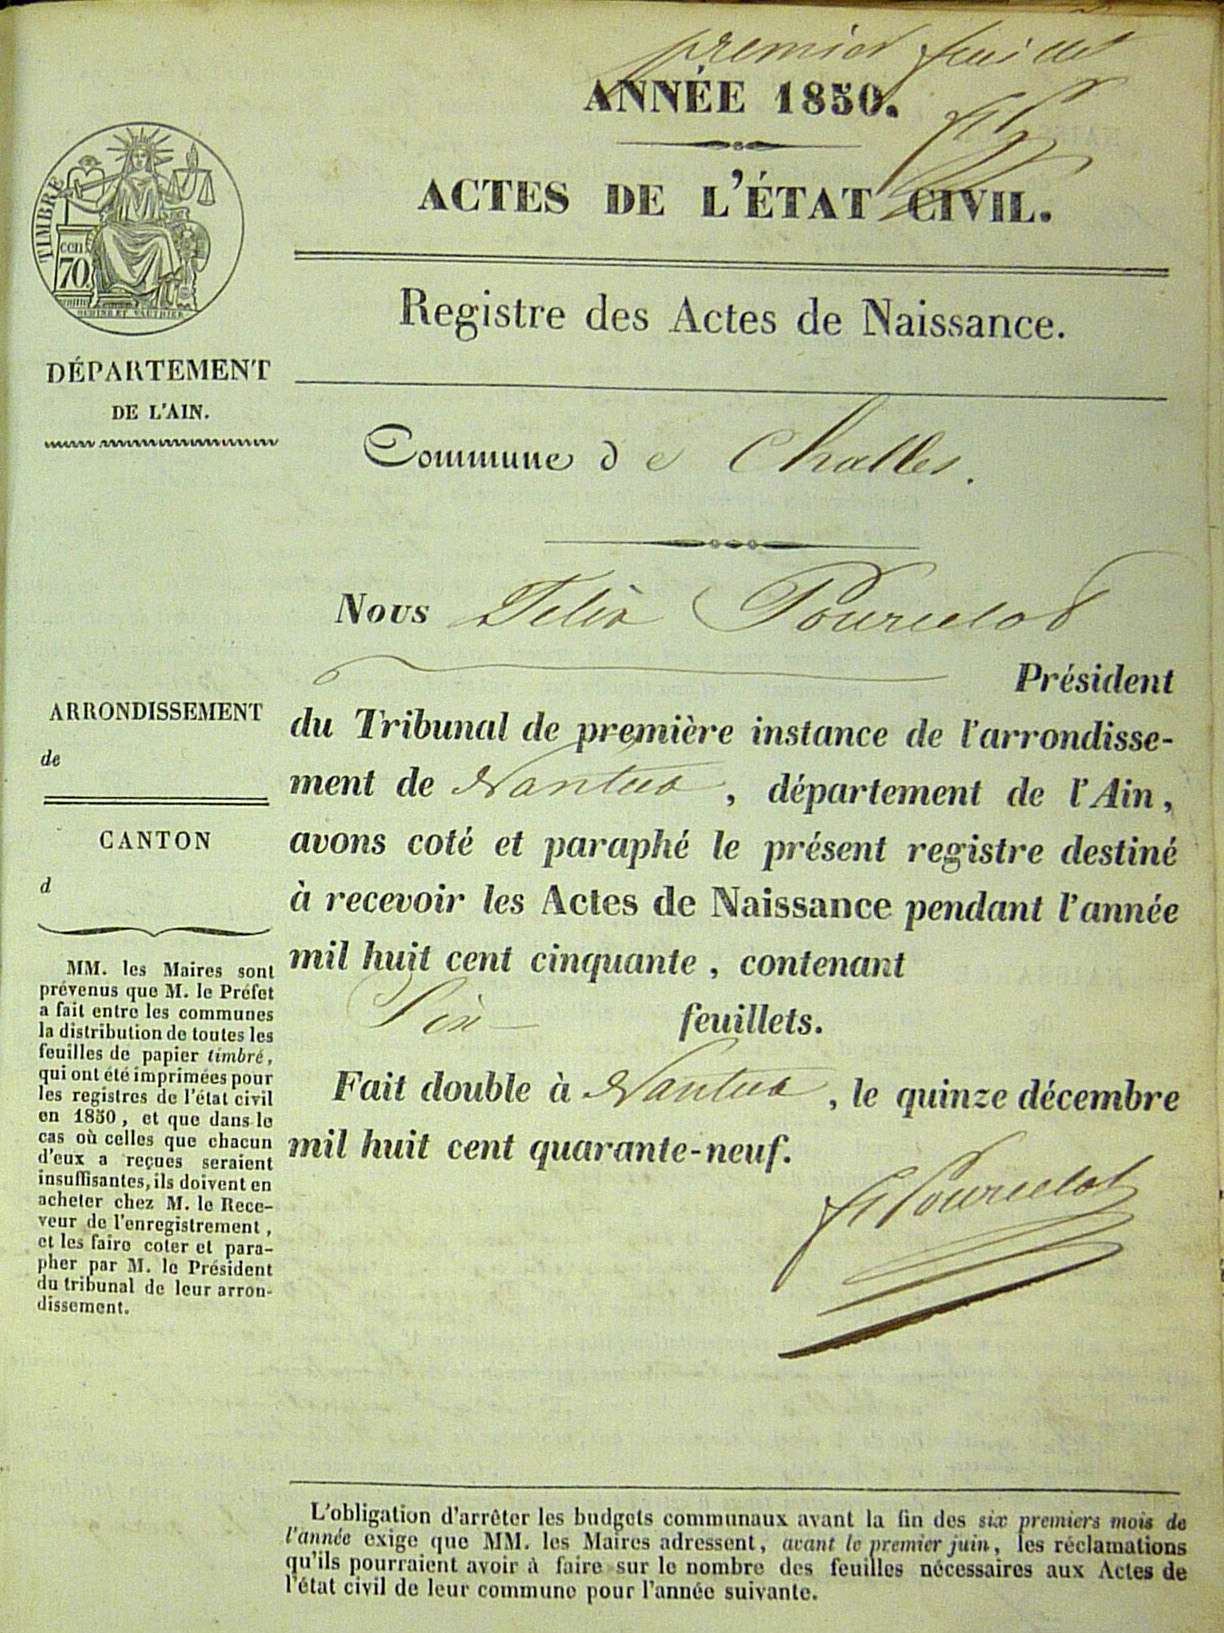 premier feuillet
ANNÉE 1850.
ACTES DE L'ÉTAT CIVIL.
TIMBRE
cen.
70
Registre des Actes de Naissance.
DÉPARTEMENT
DE L'AIN.
Commune de Challes.
Nous Félix Pourcelot
Président
du Tribunal de première instance de l'arrondisse-
ment de Nantua, département de l'Ain,
avons coté et paraphé le présent registre destiné
à recevoir les Actes de Naissance pendant l'année
mil huit cent cinquante, contenant
Six feuillets.
Fait double à Nantua, le quinze décembre
mil huit cent quarante-neuf.
F Pourcelot
ARRONDISSEMENT
de
CANTON
d
MM. les Maires sont
prévenus que M. le Préfet
a fait entre les communes
la distribution de toutes les
feuilles de papier timbré,
qui ont été imprimées pour
les registres de l'état civil
en 1850, et que dans le
cas où celles que chacun
d'eux a reçues seraient
insuffisantes, ils doivent en
acheter chez M. le Rece-
veur de l'enregistrement,
et les faire coter et para-
pher par M. le Président
du tribunal de leur arron-
dissement.
L'obligation d'arrêter les budgets communaux avant la fin des six premiers mois de
l'année exige que MM. les Maires adressent, avant le premier juin, les réclamations
qu'ils pourraient avoir à faire sur le nombre des feuilles nécessaires aux Actes de
l'état civil de leur commune pour l'année suivante.